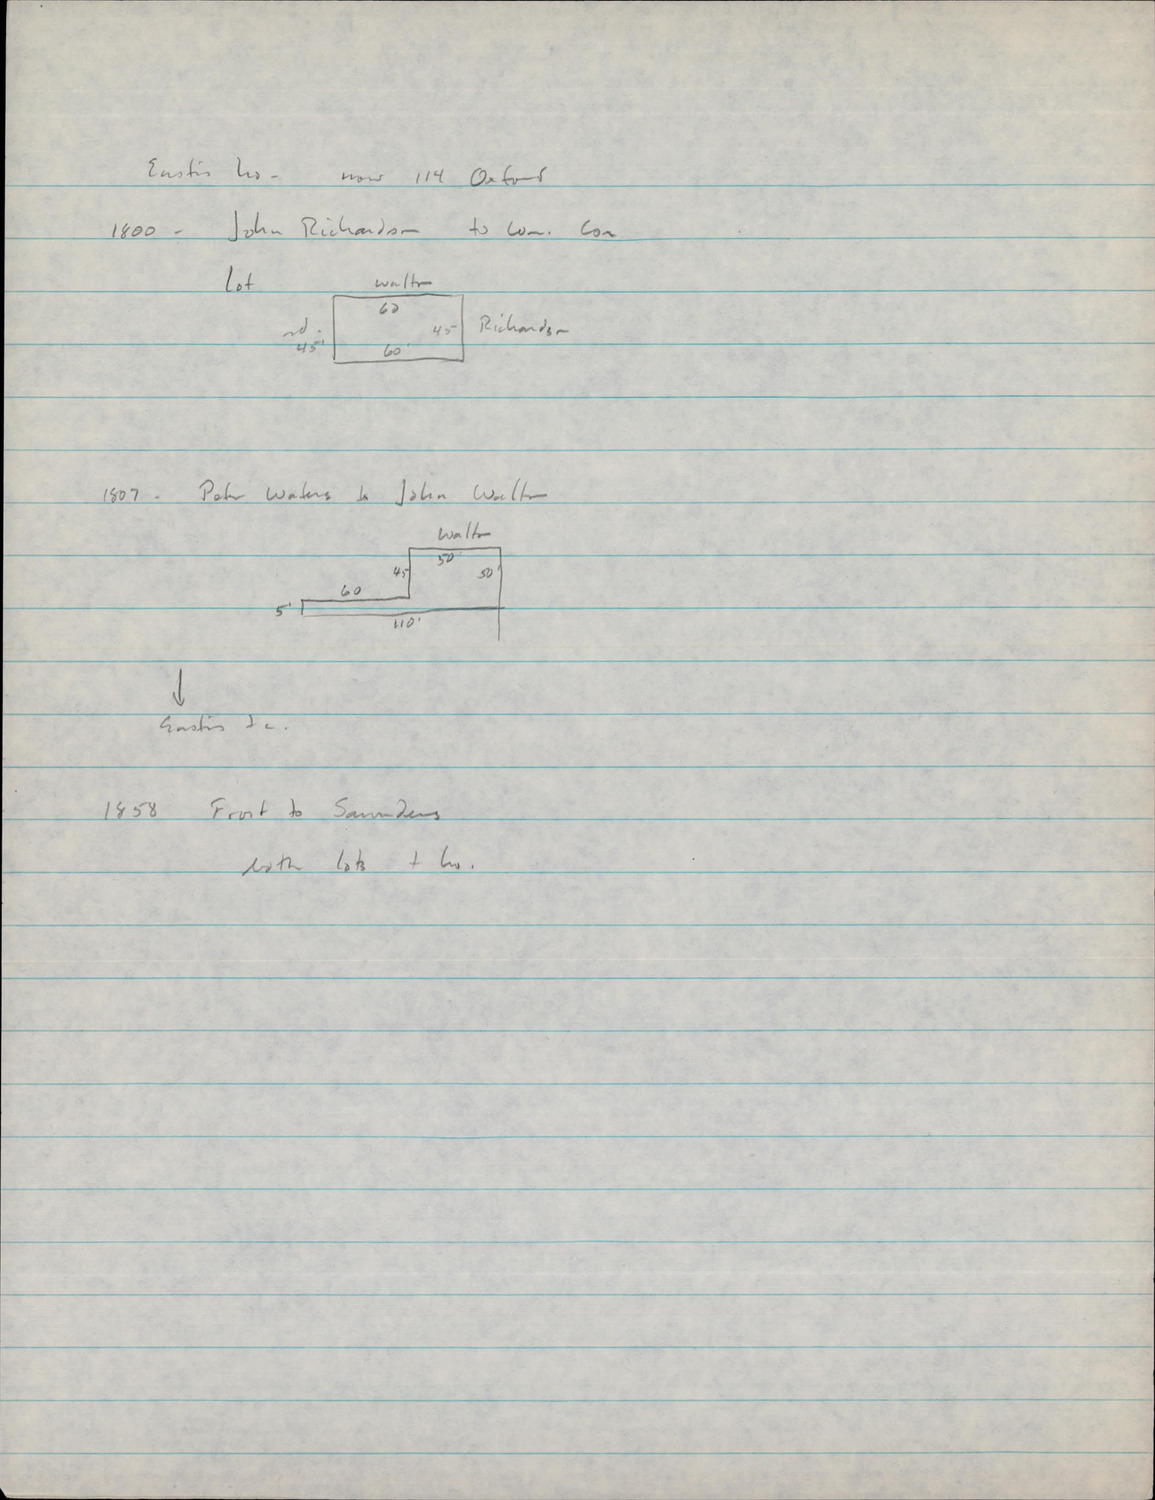 Eustis ho- now 114 Oxford
1800 - John Richardson to Wm. Cox
Lot
Walton
60
rd. 45 Richardson
45'
60'
1807 - Peter Waters to John Walton
Walton
50'
45 50'
60
5'
110'
Eustis
1858 Frost to Saunders
both lots + ho.